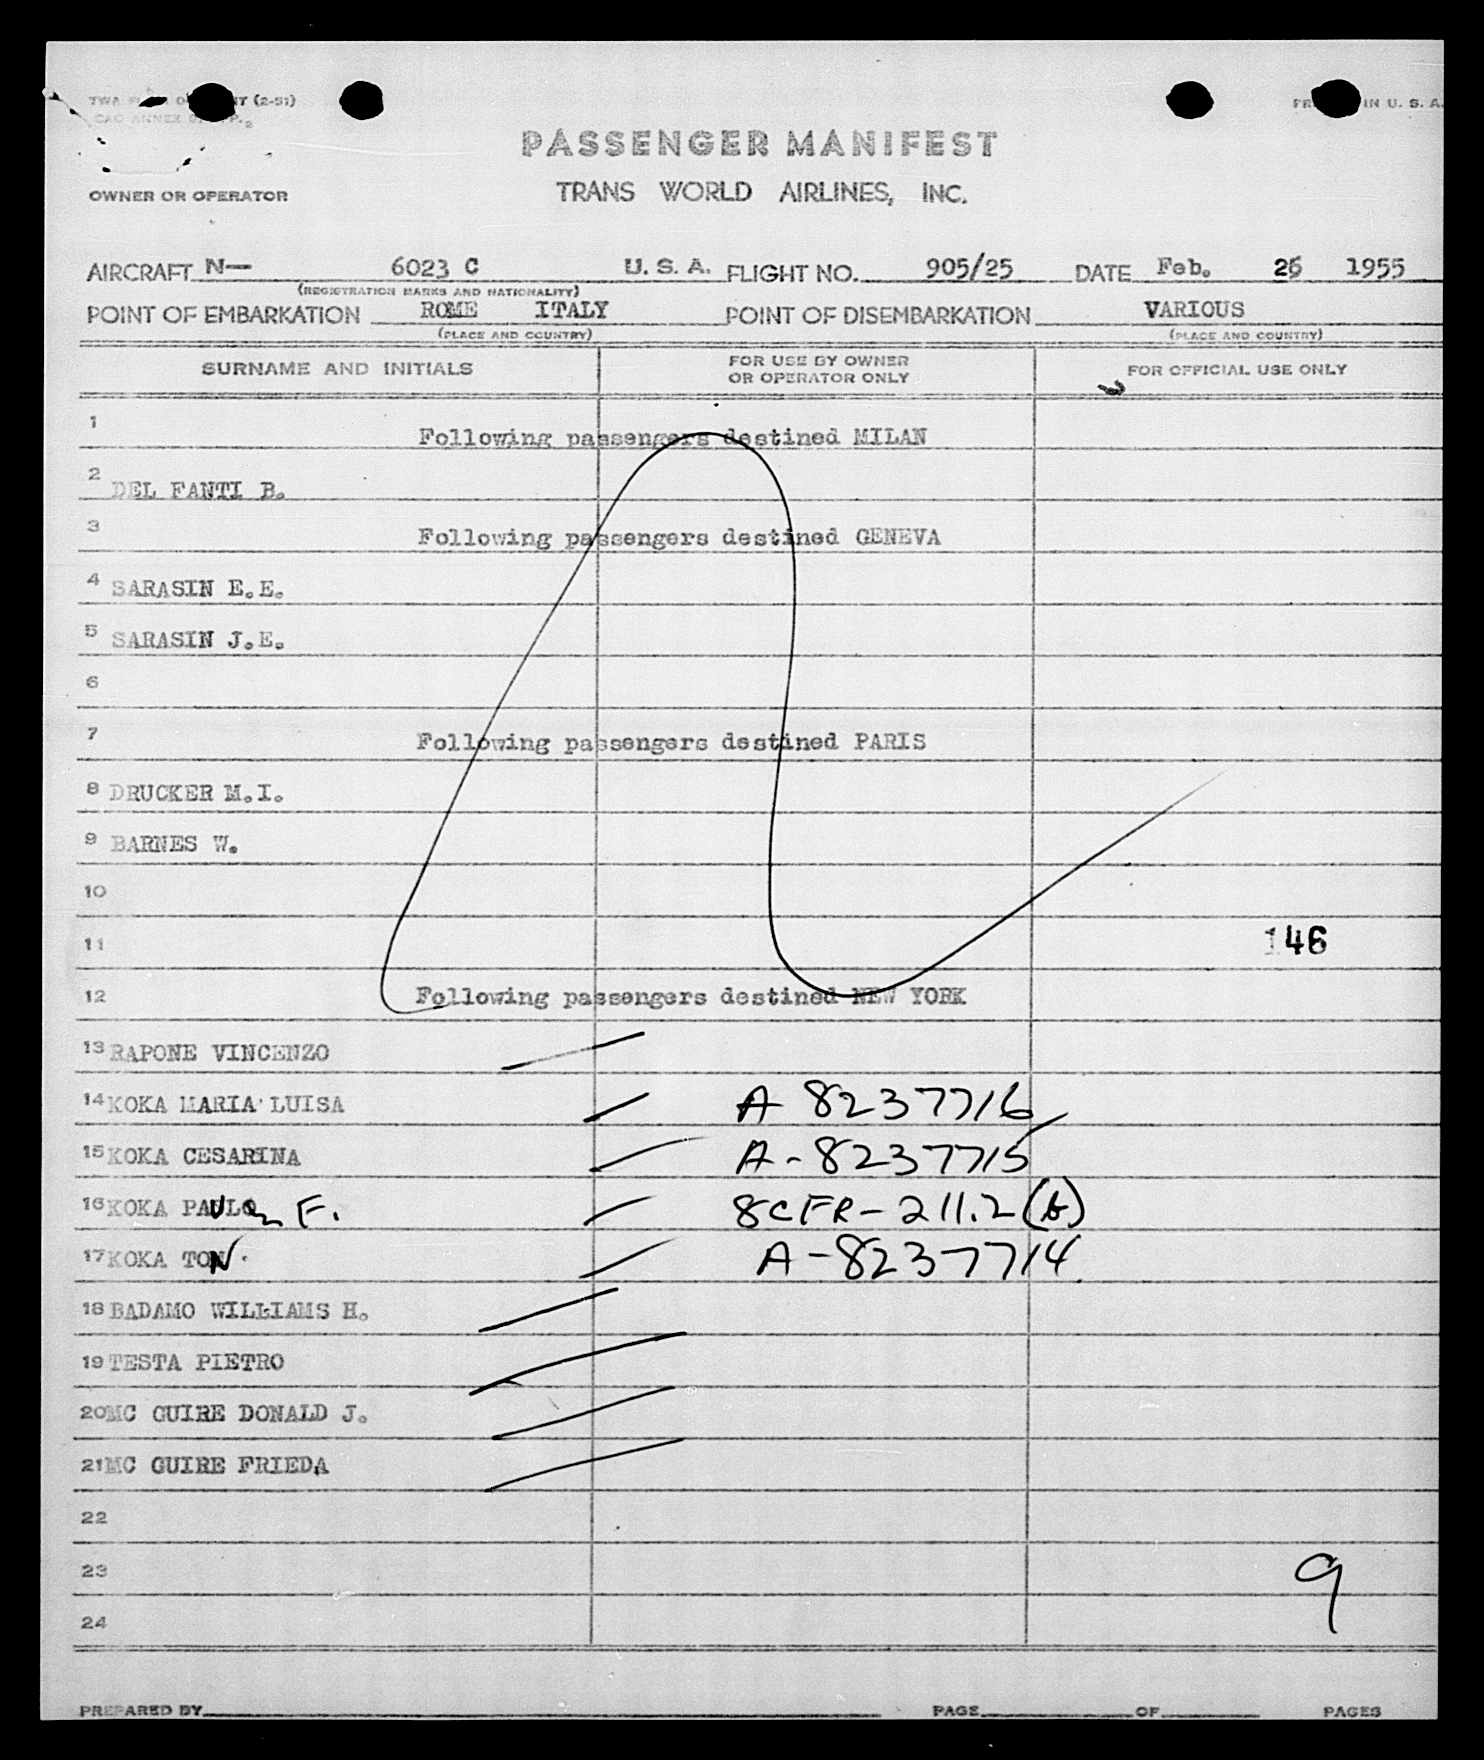 PASSENGER MANIFEST
OWNER OR OPERATOR TRANS WORLD AIRLINES, INC.
AIRCRAFT N— 6023 C U. S. A. FLIGHT NO. 905/25 DATE Feb. 26 1955
(REGISTRATION MARKS AND NATIONALITY)
POINT OF EMBARKATION ROME ITALY POINT OF DISEMBARKATION VARIOUS
(PLACE AND COUNTRY) (PLACE AND COUNTRY)
SURNAME AND INITIALS FOR USE BY OWNER OR OPERATOR ONLY FOR OFFICIAL USE ONLY
1 Following passengers destined MILAN
2 DEL FANTI B.
3 Following passengers destined GENEVA
4 SARASIN E.E.
5 SARASIN J.E.
6
7 Following passengers destined PARIS
8 DRUCKER M.I.
9 BARNES W.
10
11 146
12 Following passengers destined NEW YORK
13 RAPONE VINCENZO
14 KOKA MARIA LUISA A-8237716
15 KOKA CESARINA A-8237715
16 KOKA PAULO F. 8CFR-211.2(b)
17 KOKA TON A-8237714
18 BADAMO WILLIAMS H.
19 TESTA PIETRO
20 MC GUIRE DONALD J.
21 MC GUIRE FRIEDA
22
23 9
24
PREPARED BY PAGE OF PAGES